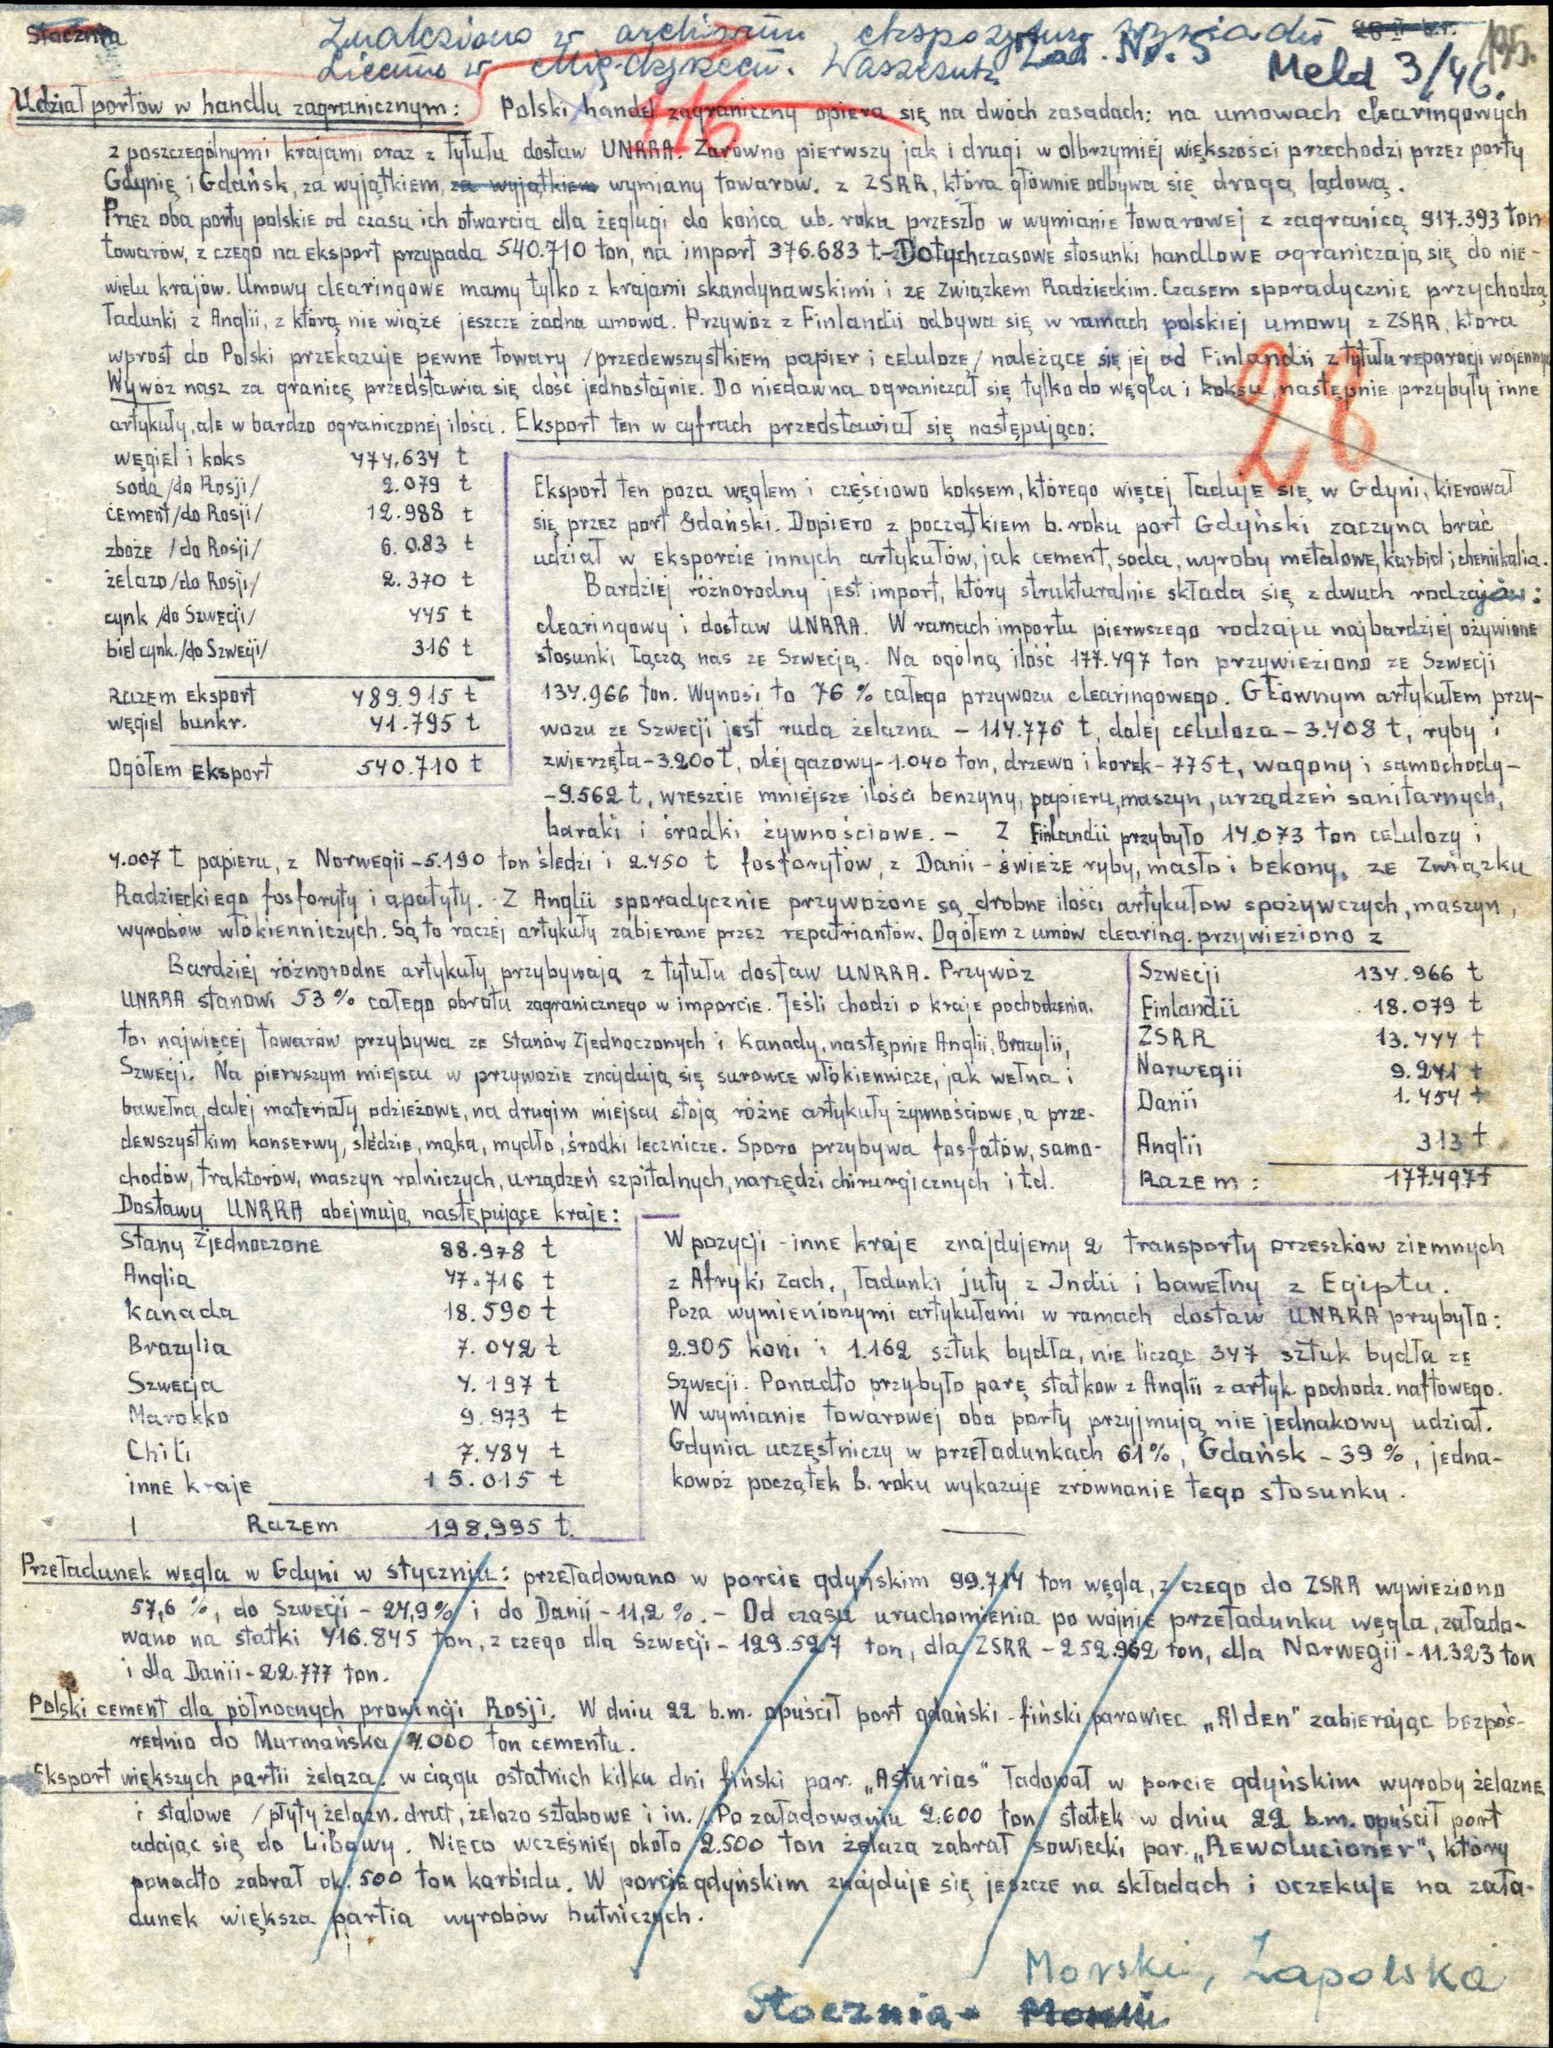 Stocznia
Znaleziono w archiwum, ekspozytur
Zad. Nr. 5
Meld 3/46.
195.
116
28
Udział portów w handlu zagranicznym: Polski handel zagraniczny opiera się na dwóch zasadach: na umowach clearingowych
z poszczególnymi krajami oraz z tytułu dostaw UNRRA. Zarówno pierwszy jak i drugi w olbrzymiej większości przechodzi przez porty
Gdynię i Gdańsk, za wyjątkiem, za wyjątkiem wymiany towarów. z ZSRR, która głównie odbywa się drogą lądową.
Przez oba porty polskie od czasu ich otwarcia dla żeglugi do końca ub. roku przeszło w wymianie towarowej z zagranicą 917.393 ton
towarów, z czego na eksport przypada 540.710 ton, na import 376.683 t.- Dotychczasowe stosunki handlowe ograniczają się do nie-
wielu krajów. Umowy clearingowe mamy tylko z krajami skandynawskimi i ze Związkem Radzieckim. Czasem sporadycznie przychodzą
ładunki z Anglii, z którą nie wiąże jeszcze żadna umowa. Przywóz z Finlandii odbywa się w ramach polskiej umowy z ZSRR, która
wprost do Polski przekazuje pewne towary /przedewszystkiem papier i celulozę/ należące się jej od Finlandii z tytułu reparacji wojennych
Wywóz nasz za granicę przedstawia się dość jednostajnie. Do niedawna ograniczał się tylko do węgla i koksu, następnie przybyły inne
artykuły, ale w bardzo ograniczonej ilości. Eksport ten w cyfrach przedstawiał się następująco:
węgiel i koks 474.634 t
soda /do Rosji/ 2.079 t
cement /do Rosji/ 12.988 t
zboże /do Rosji/ 6.083 t
żelazo /do Rosji/ 2.370 t
cynk /do Szwecji/ 445 t
biel cynk. /do Szwecji/ 316 t
Razem eksport 489.915 t
węgiel bunkr. 41.795 t
Ogółem eksport 540.710 t
Eksport ten poza węglem i częściowo koksem, którego więcej ładuje się w Gdyni, kierował
się przez port Gdański. Dopiero z początkiem b. roku port Gdyński zaczyna brać
udział w eksporcie innych artykułów, jak cement, soda, wyroby metalowe, karbid i chemikalia.
Bardziej różnorodny jest import, który strukturalnie składa się z dwuch rodzajów:
clearingowy i dostaw UNRRA. W ramach importu pierwszego rodzaju najbardziej ożywione
stosunki łączą nas ze Szwecją. Na ogólną ilość 177.497 ton przywieziono ze Szwecji
134.966 ton. Wynosi to 76 % całego przywozu clearingowego. Głównym artykułem przy-
wozu ze Szwecji jest ruda żelazna - 114.776 t, dalej celuloza - 3.408 t, ryby i
zwierzęta - 3.200 t, olej gazowy - 1.040 ton, drzewo i korek - 775 t, wagony i samochody -
- 9.562 t, wreszcie mniejsze ilości benzyny, papieru, maszyn, urządzeń sanitarnych,
baraki i środki żywnościowe. - Z Finlandii przybyło 14.073 ton celulozy i
4.007 t papieru, z Norwegii - 5.190 ton śledzi i 2.450 t fosforytów, z Danii - świeże ryby, masło i bekony, ze Związku
Radzieckiego fosforyty i apatyty. Z Anglii sporadycznie przywożone są drobne ilości artykułow spożywczych, maszyn,
wyrobów włókienniczych. Są to raczej artykuły zabierane przez repatriantów. Ogółem z umów clearing. przywieziono z
Szwecji 134.966 t
Finlandii 18.079 t
ZSRR 13.444 t
Norwegii 9.241 t
Danii 1.454 t
Anglii 313 t
Razem: 177.497 t
Bardziej różnorodne artykuły przybywają z tytułu dostaw UNRRA. Przywóz
UNRRA stanowi 53 % całego obrotu zagranicznego w imporcie. Jeśli chodzi o kraje pochodzenia.
to, najwięcej towarów przybywa ze Stanów Zjednoczonych i Kanady, następnie Anglii, Brazylii,
Szwecji. Na pierwszym miejscu w przywozie znajdują się surowce włókiennicze, jak wełna i
bawełna, dalej materiały odzieżowe, na drugim miejscu stoją różne artykuły żywnościowe, a prze-
dewszystkim konserwy, śledzie, mąka, mydło, środki lecznicze. Sporo przybywa fosfatów, samo-
chodów, traktorów, maszyn rolniczych, urządzeń szpitalnych, narzędzi chirurgicznych i t.d.
Dostawy UNRRA obejmują następujące kraje:
Stany Zjednoczone 88.978 t
Anglia 47.716 t
Kanada 18.590 t
Brazylia 7.042 t
Szwecja 4.197 t
Marokko 9.973 t
Chili 7.484 t
inne kraje 15.015 t
Razem 198.995 t.
W pozycji - inne kraje znajdujemy 2 transporty orzeszków ziemnych
z Afryki Zach., ładunki juty z Indii i bawełny z Egiptu.
Poza wymienionymi artykułami w ramach dostaw UNRRA przybyło:
2.905 koni i 1.162 sztuk bydła, nie licząc 347 sztuk bydła ze
Szwecji. Ponadto przybyło parę statkow z Anglii z artyk. pochodz. naftowego.
W wymianie towarowej oba porty przyjmują nie jednakowy udział.
Gdynia uczęstniczy w przeładunkach 61%, Gdańsk - 39 %, jedna-
kowoż początek b. roku wykazuje zrównanie tego stosunku.
Przeładunek węgla w Gdyni w styczniu: przeładowano w porcie gdyńskim 99.714 ton węgla, z czego do ZSRR wywieziono
57,6 %, do Szwecji - 24,9% i do Danii - 11,2 %. - Od czasu uruchomienia po wojnie przeładunku węgla, załado-
wano na statki 416.845 ton, z czego dla Szwecji - 129.527 ton, dla ZSRR - 252.962 ton, dla Norwegii - 11.323 ton
i dla Danii - 22.777 ton.
Polski cement dla północnych prowincji Rosji. W dniu 22 b.m. opuścił port gdański - fiński parowiec „Alden" zabierając bezpoś-
rednio do Murmańska 4.000 ton cementu.
Eksport większych partii żelaza. w ciągu ostatnich kilku dni fiński par. „Asturias" ładował w porcie gdyńskim wyroby żelazne
i stalowe /płyty żelazn. drut, żelazo sztabowe i in./ Po załadowaniu 2.600 ton statek w dniu 22 b.m. opuścił port
udając się do Libawy. Nieco wcześniej około 2.500 ton żelaza zabrał sowiecki par. „Rewolucioner", który
ponadto zabrał ok. 500 ton karbidu. W porcie gdyńskim znajduje się jeszcze na składach i oczekuje na zała-
dunek większa partia wyrobów hutniczych.
Morski, Zapolska
Stocznia -